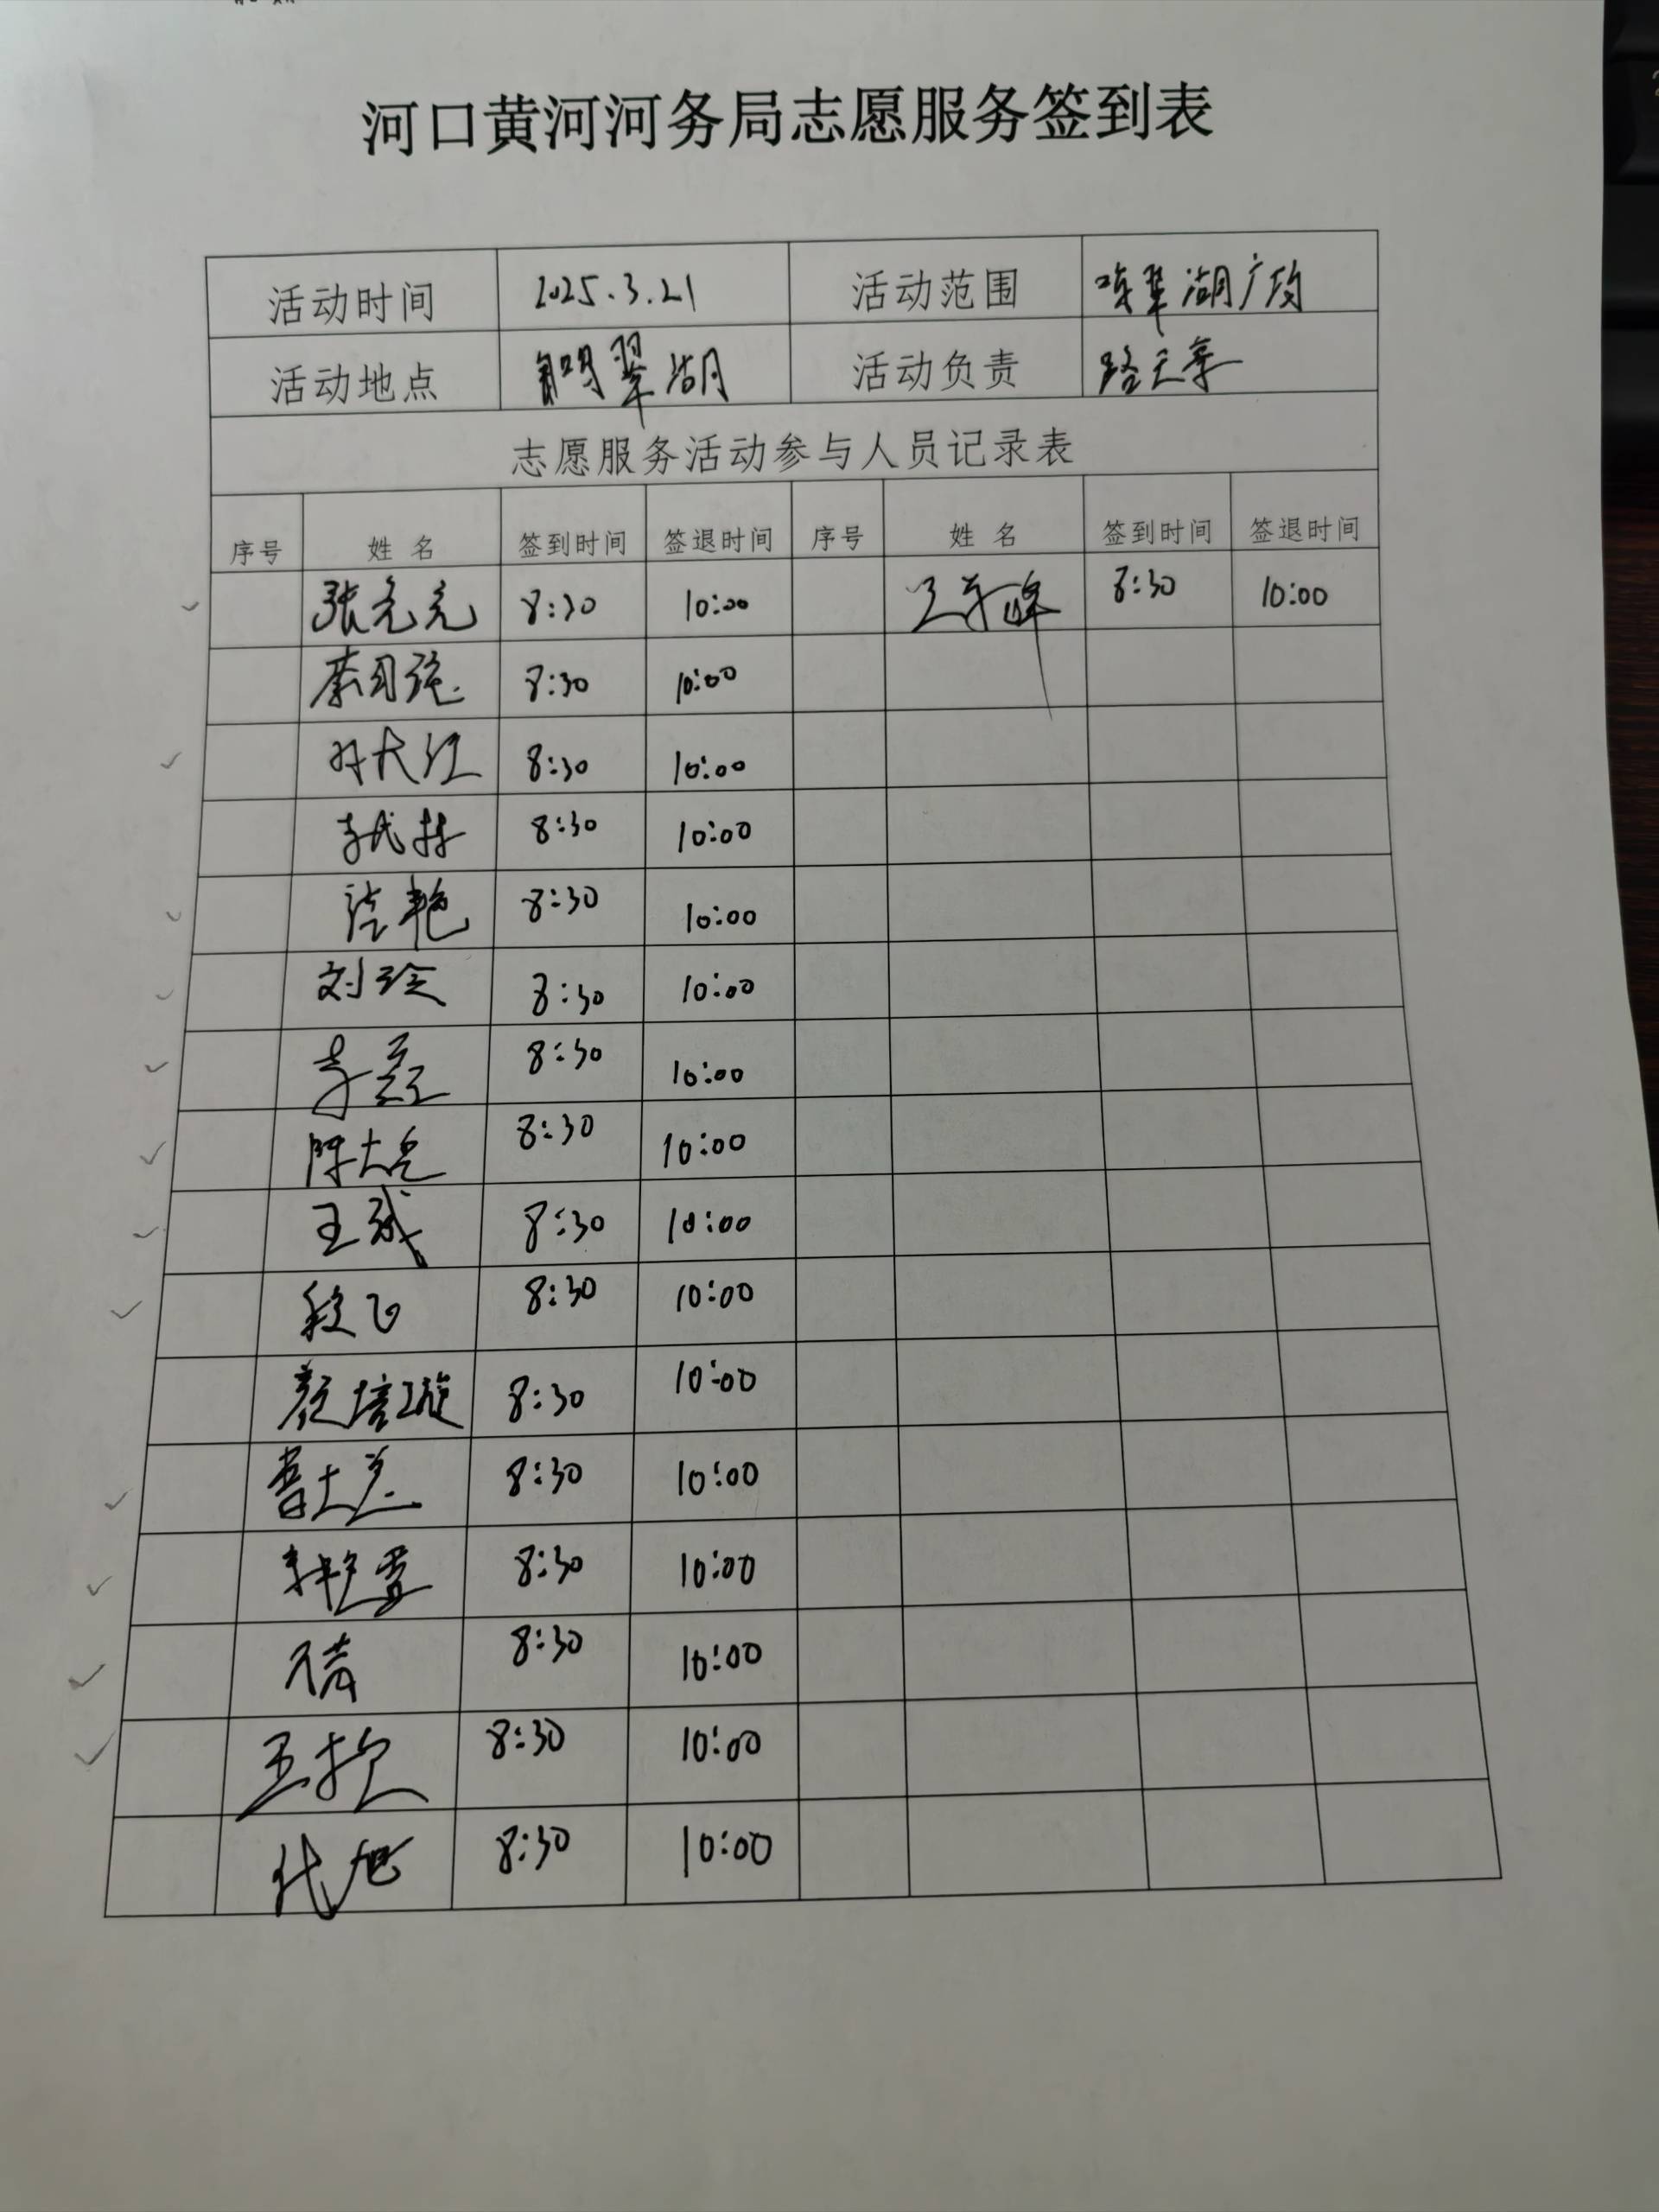 河口黄河河务局志愿服务签到表
活动时间 2025.3.21 活动范围 翠湖广场
活动地点 鸣翠湖 活动负责 路天
志愿服务活动参与人员记录表
序号 姓名 签到时间 签退时间 序号 姓名 签到时间 签退时间
张亮亮 8:30 10:00 8:30 10:00
8:30 10:00
8:30 10:00
8:30 10:00
艳 8:30 10:00
刘玲 8:30 10:00
李磊 8:30 10:00
陈大亮 8:30 10:00
王斌 8:30 10:00
段飞 8:30 10:00
颜培璇 8:30 10:00
8:30 10:00
8:30 10:00
8:30 10:00
王 8:30 10:00
代旭 8:30 10:00